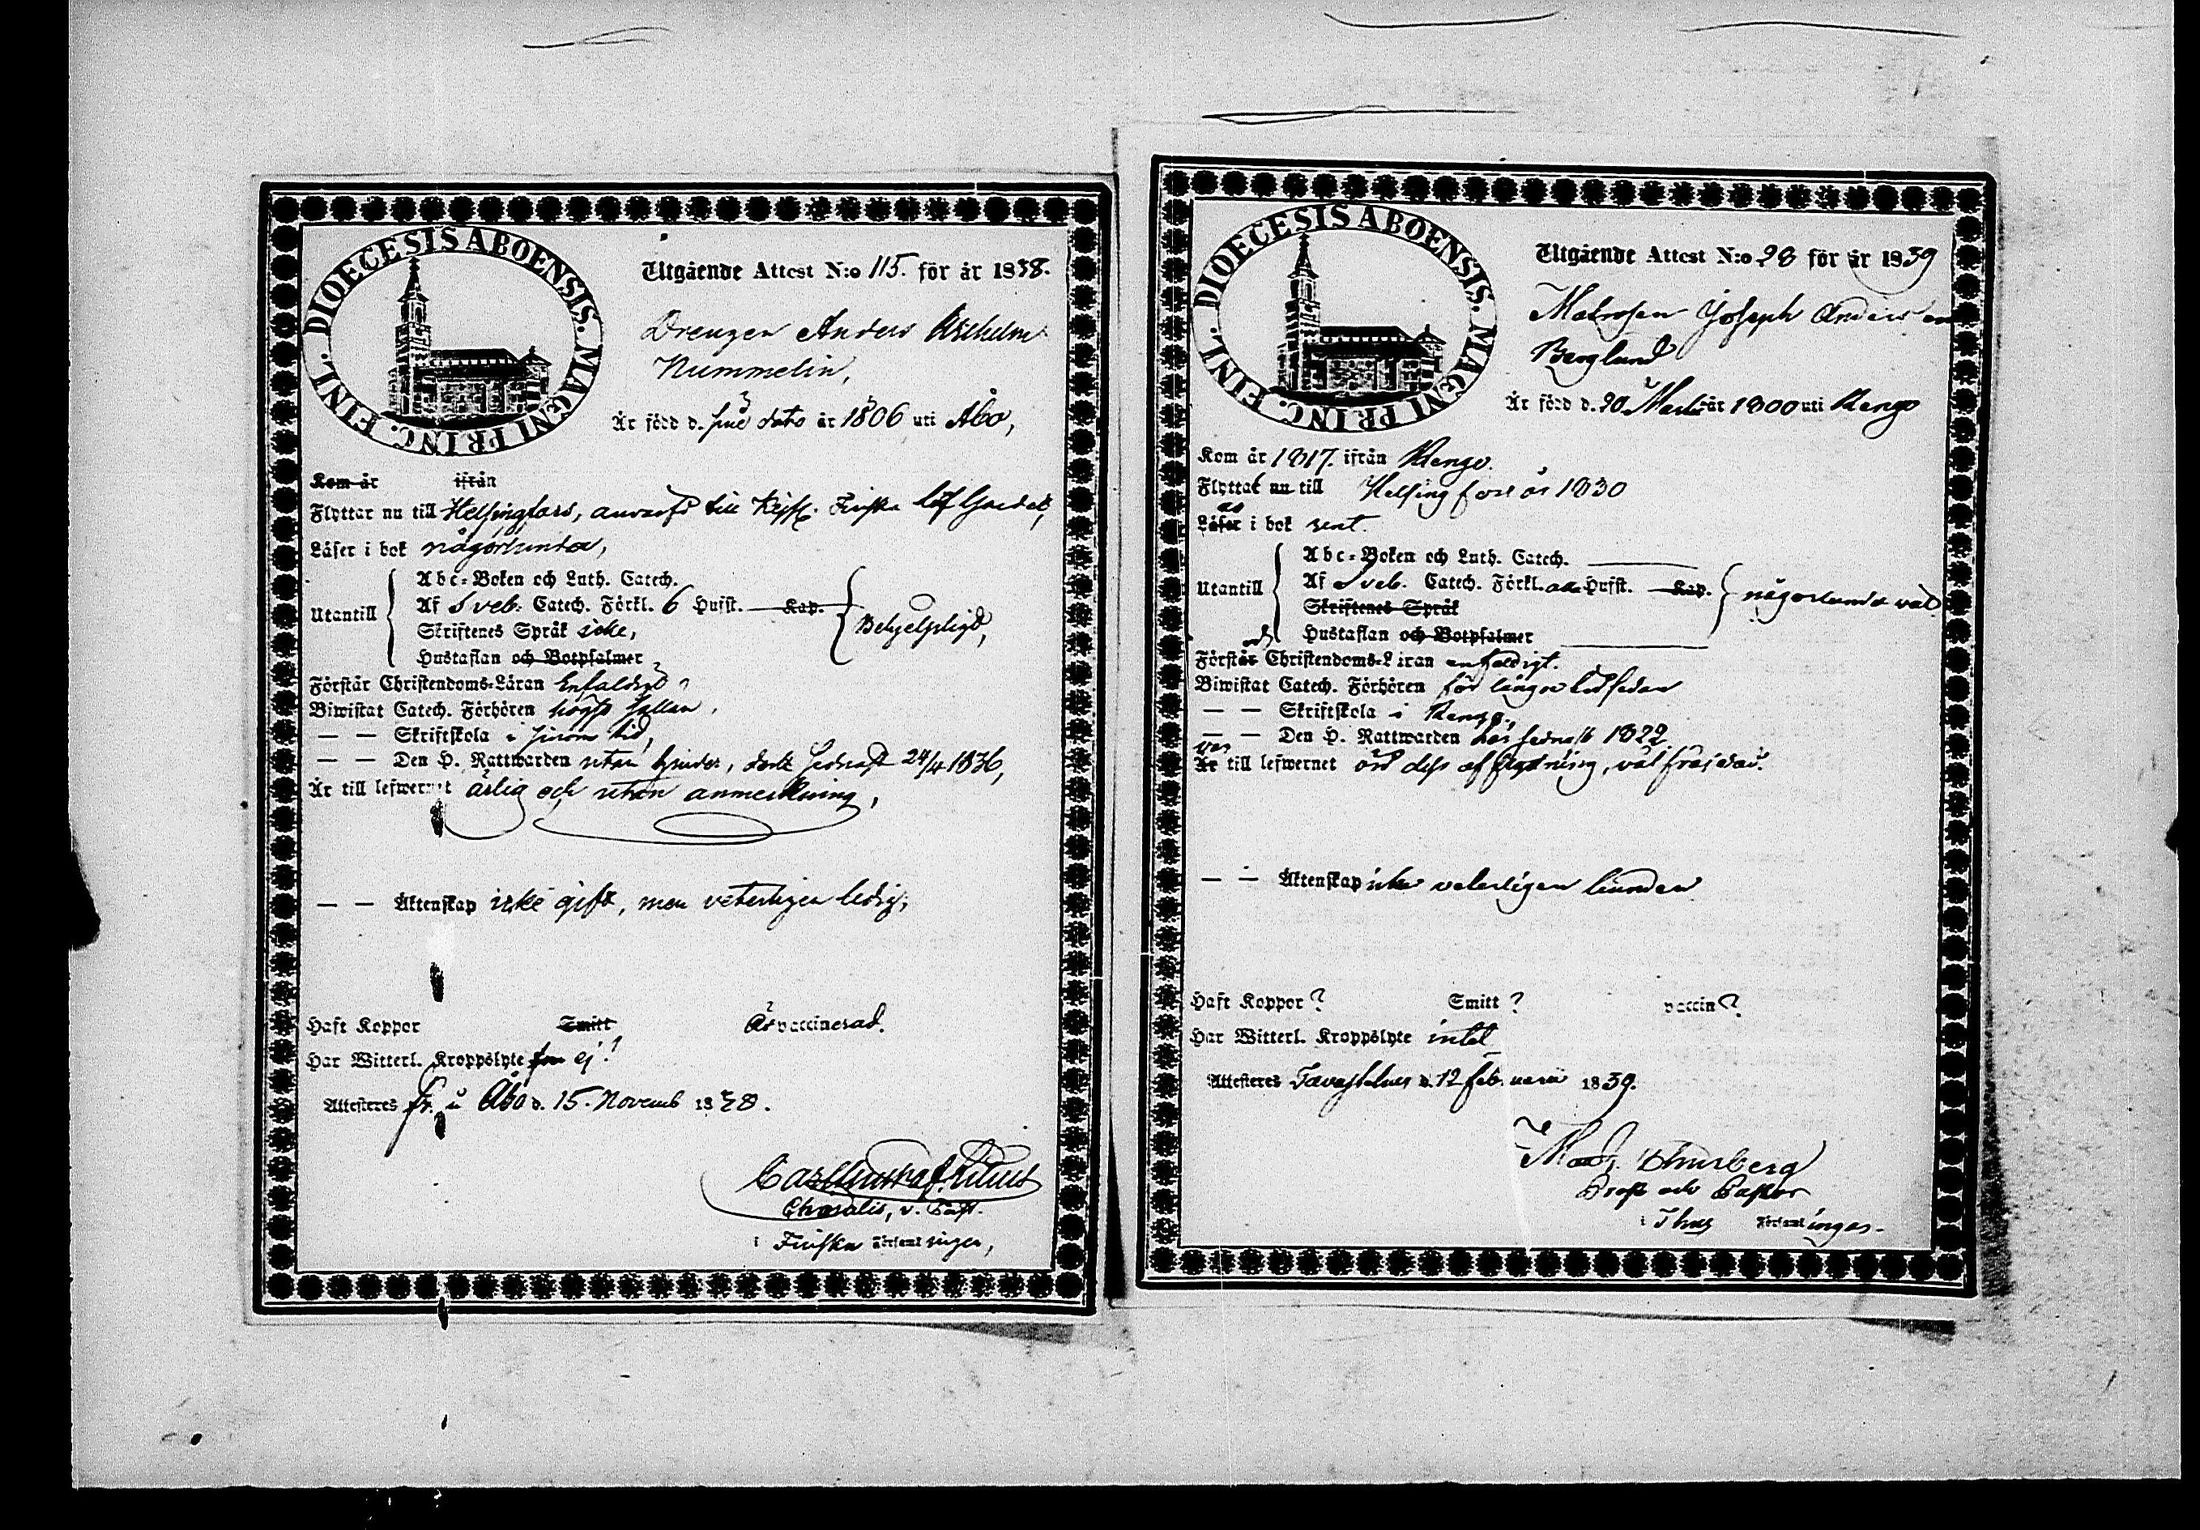 DIOECESIS ABOENSIS. MAGNI PRINC. FINL.
Utgående Attest N:o 115. för år 1838.
Drengen Anders Wilhelm
Nummelin,
Är född d. sine dato år 1806 uti Åbo,
Kom år ifrån
Flyttar nu till Helsingfors, till Finska
Läser i bok någorlunda,
Utantill
Abc-Boken och Luth. Catech.
Af Sveb. Catech. Förkl. 6 Hufst. Kap.
Skriftenes Språk icke,
Hustaflan och Botpsalmer
Behjelpligt,
Förstår Christendoms-Läran Enfaldigt
Biwistat Catech. Förhören högst sällan,
— — Skriftskola i sinom tid,
— — Den H. Nattwarden utan hinder, sednast 24/4 1836,
Är till lefwernet ärlig och utan anmerkning,
— — Äktenskap icke gift, men veterligen ledig,
Haft Koppor Smitt Är vaccinerad.
Har Witterl. Kroppslyte ej?
Attesteres fr. Åbo d. 15. Novemb 1838.
v. Past.
i Finska Församlingen,
DIOECESIS ABOENSIS. MAGNI PRINC. FINL.
Utgående Attest N:o 28 för år 1839
Matrosen Joseph Anders
Berglund
Är född d. 20 Martii år 1800 uti Rengo
Kom år 1817. ifrån Rengo.
Flyttat nu till Helsingfors år 1830
Läser i bok rent.
Utantill
Abc-Boken och Luth. Catech.
Af Sveb. Catech. Förkl. alla Hufst. Kap.
Skriftenes Språk
Hustaflan och Botpsalmer
någorlunda väl
Förstår Christendoms-Läran enfaldigt.
Biwistat Catech. Förhören för längre tid sedan
— — Skriftskola i Rengo,
— — Den H. Nattwarden här sednast 1822
var
Är till lefwernet vid dess afflyttning, väl frejdad.
— — Äktenskap icke veterligen bunden
Haft Koppor? Smitt? vaccin?
Har Witterl. Kroppslyte intet
Attesteres Tavastehus d. 12 februarii 1839.
Thunberg
Prost och Pastor
i Thus Församlingar.